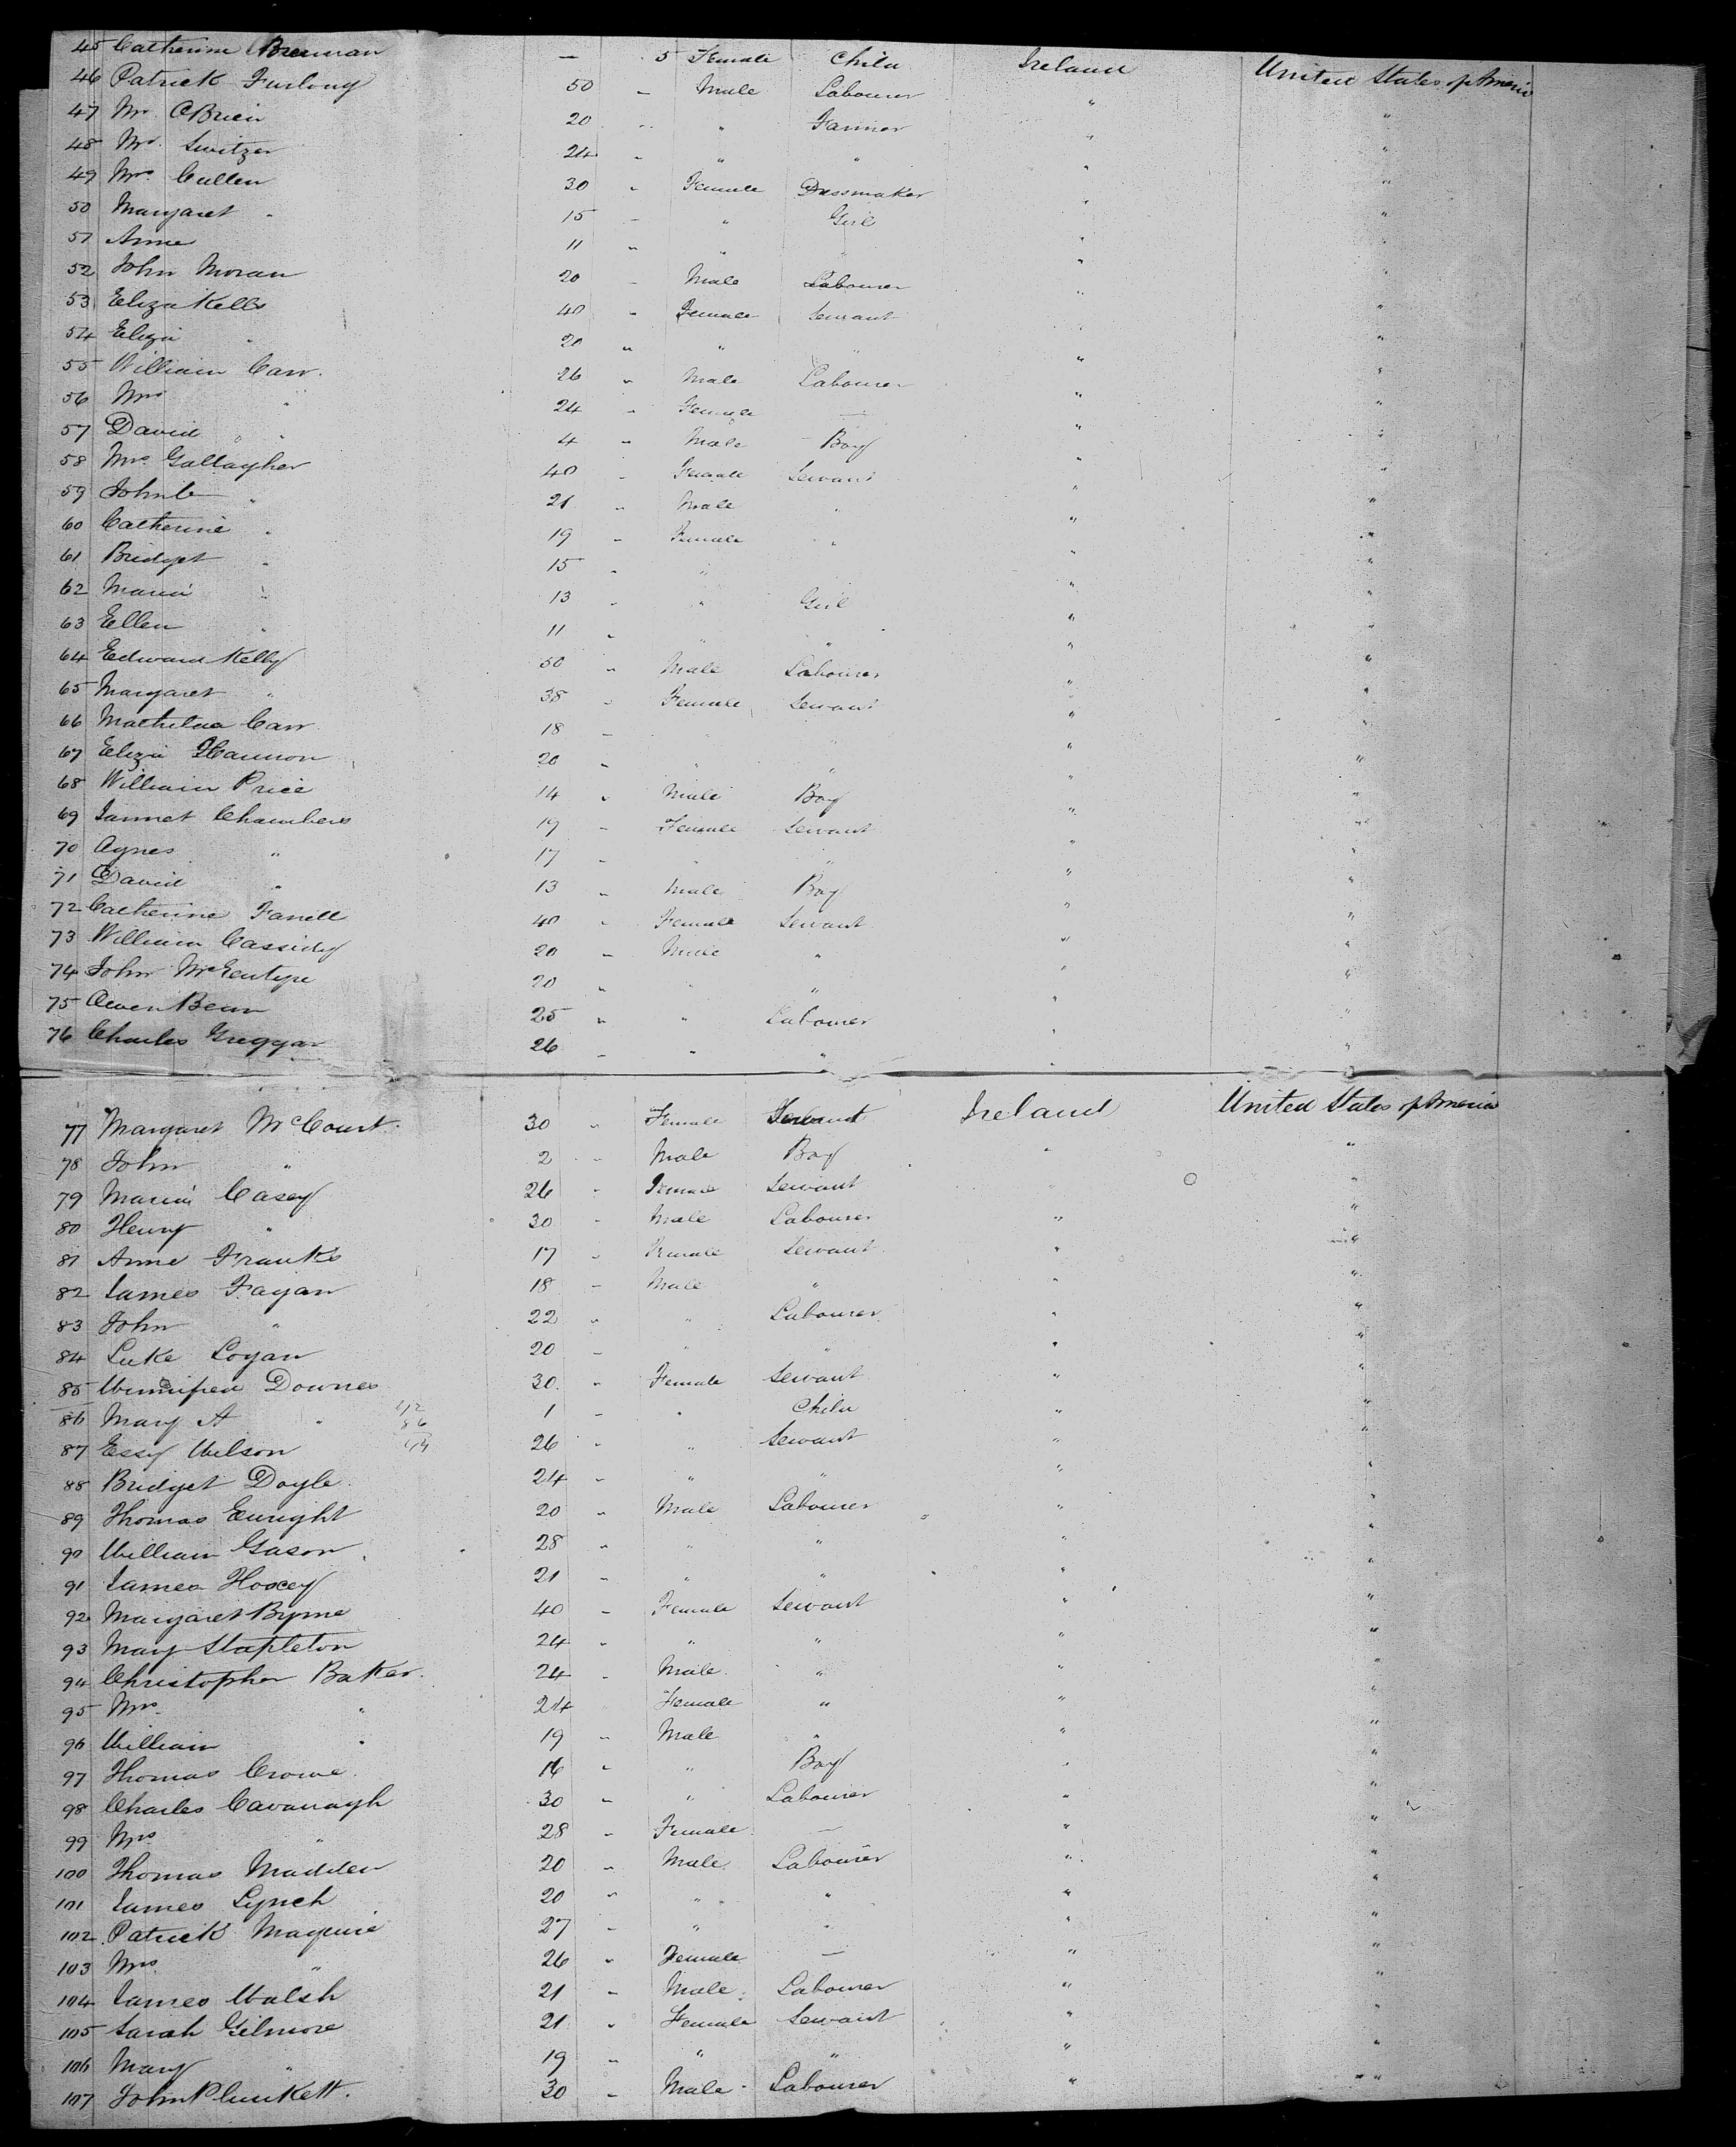 45 Catherine Brennan — 5 Female Child Ireland United States of America
46 Patrick Furlong 50 " Male Labourer " "
47 Mr. O'Brien 20 " " Farmer " "
48 Mr. Switzer 24 " " " " "
49 Mrs. Cullen 30 " Female Dressmaker " "
50 Margaret " 15 " " Girl " "
51 Anne 11 " " " " "
52 John Moran 20 " Male Labourer " "
53 Eliza Kells 40 " Female Servant " "
54 Eliza " 20 " " " " "
55 William Carr. 26 " Male Labourer " "
56 Mrs " 24 " Female — " "
57 David " 4 " Male Boy " "
58 Mrs. Gallagher 40 " Female Servant " "
59 John " 21 " Male " " "
60 Catherine " 19 " Female " " "
61 Bridget " 15 " " " "
62 Maria " 13 " " Girl " "
63 Ellen " 11 " " " " "
64 Edward Kelly 50 " Male Labourer " "
65 Margaret " 38 " Female Servant " "
66 Mathilda Carr 18 " " " " "
67 Eliza Hannon 20 " " " " "
68 William Price 14 " Male Boy " "
69 Jannet Chambers 19 " Female Servant " "
70 Agnes " 17 " " " " "
71 David " 13 " Male Boy " "
72 Catherine Farrell 40 " Female Servant " "
73 William Cassidy 20 " Male " " "
74 John McEntyre 20 " " " " "
75 Owen Bean 25 " " Labourer " "
76 Charles Greggar 26 " " " " "
77 Margaret McCourt 30 " Female Servant Ireland United States of America
78 John " 2 " Male Boy " "
79 Maria Casey 26 " Female Servant " "
80 Henry " 30 " Male Labourer " "
81 Anne Franks 17 " Female Servant " "
82 James Fagan 18 " Male " " "
83 John " 22 " " Labourer " "
84 Luke Logan 20 " " " " "
85 Winnifred Downes 30 " Female Servant " "
86 Mary A " 1 " " Child " "
87 Essy Wilson 26 " " Servant " "
88 Bridget Doyle 24 " " " " "
89 Thomas Enright 20 " Male Labourer " "
90 William Gason 28 " " " " "
91 James Hooey 21 " " " " "
92 Margaret Byrne 40 " Female Servant " "
93 Mary Stapleton 24 " " " " "
94 Christopher Baker 24 " Male " " "
95 Mrs. " 24 Female " " "
96 William " 19 " Male " " "
97 Thomas Crowe 16 " " Boy " "
98 Charles Cavanagh 30 " " Labourer " "
99 Mrs " 28 " Female — " "
100 Thomas Madden 20 " Male Labourer " "
101 James Lynch 20 " " " " "
102 Patrick Maguire 27 " " " " "
103 Mrs. " 26 " Female — " "
104 James Walsh 21 " Male Labourer " "
105 Sarah Gilmore 21 " Female Servant " "
106 Mary " 19 " " " " "
107 John Plunkett. 30 " Male Labourer " "